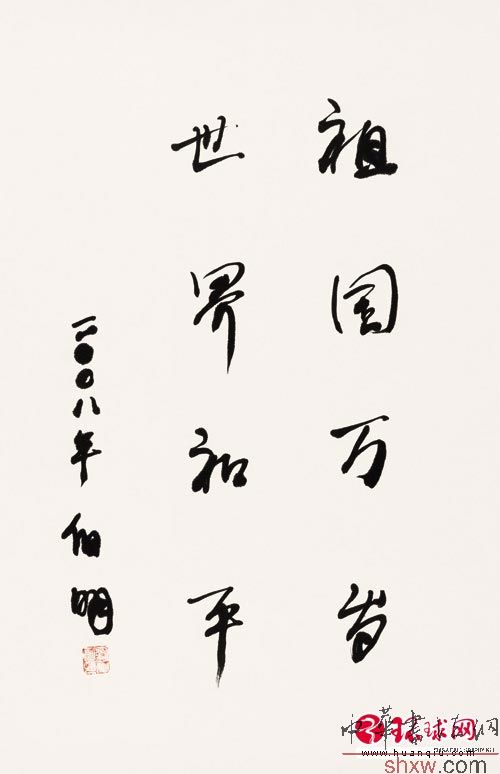 祖国万岁
世界和平
二〇〇八年 伯明
环球网
www.huanqiu.com
中华书画网
shxw.com